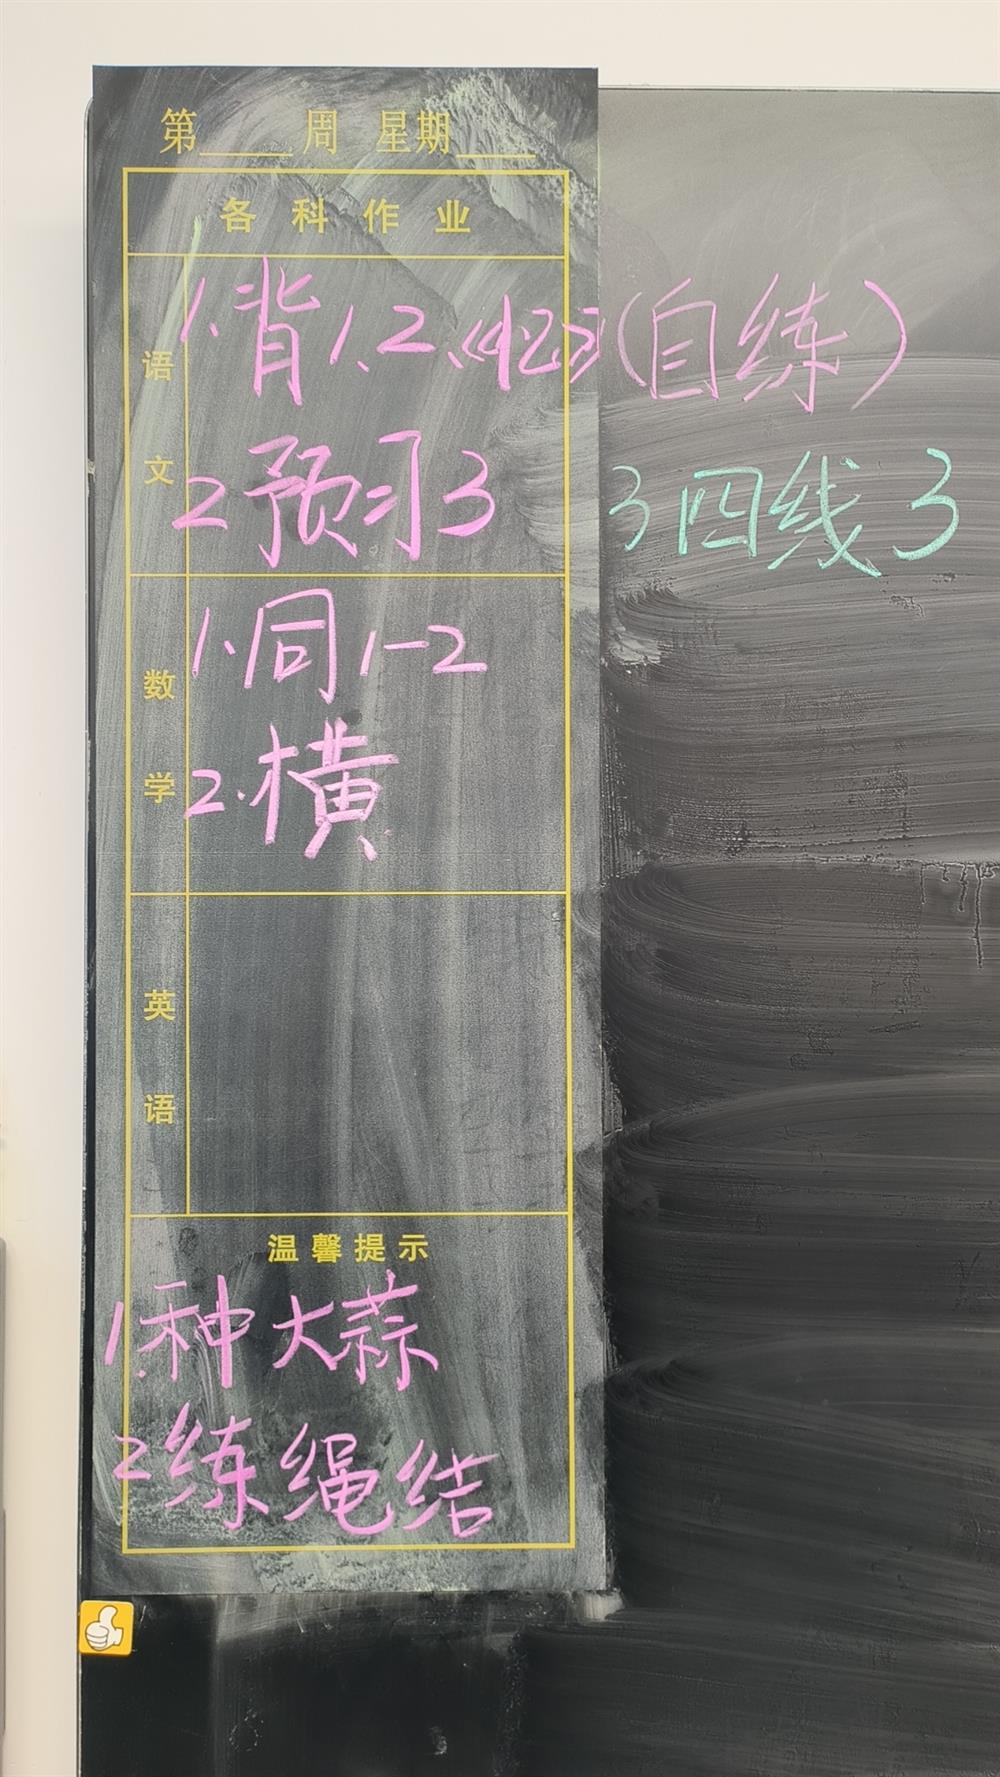 第____周 星期____
各科作业
语文
1.背1、2、《忆》(自练)
2 预习3
3 四线3
数学
1.同1-2
2.横
英语
温馨提示
1.种大蒜
2.练绳结